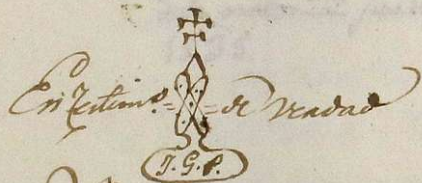 En testimo = de verdad
J. G. P.